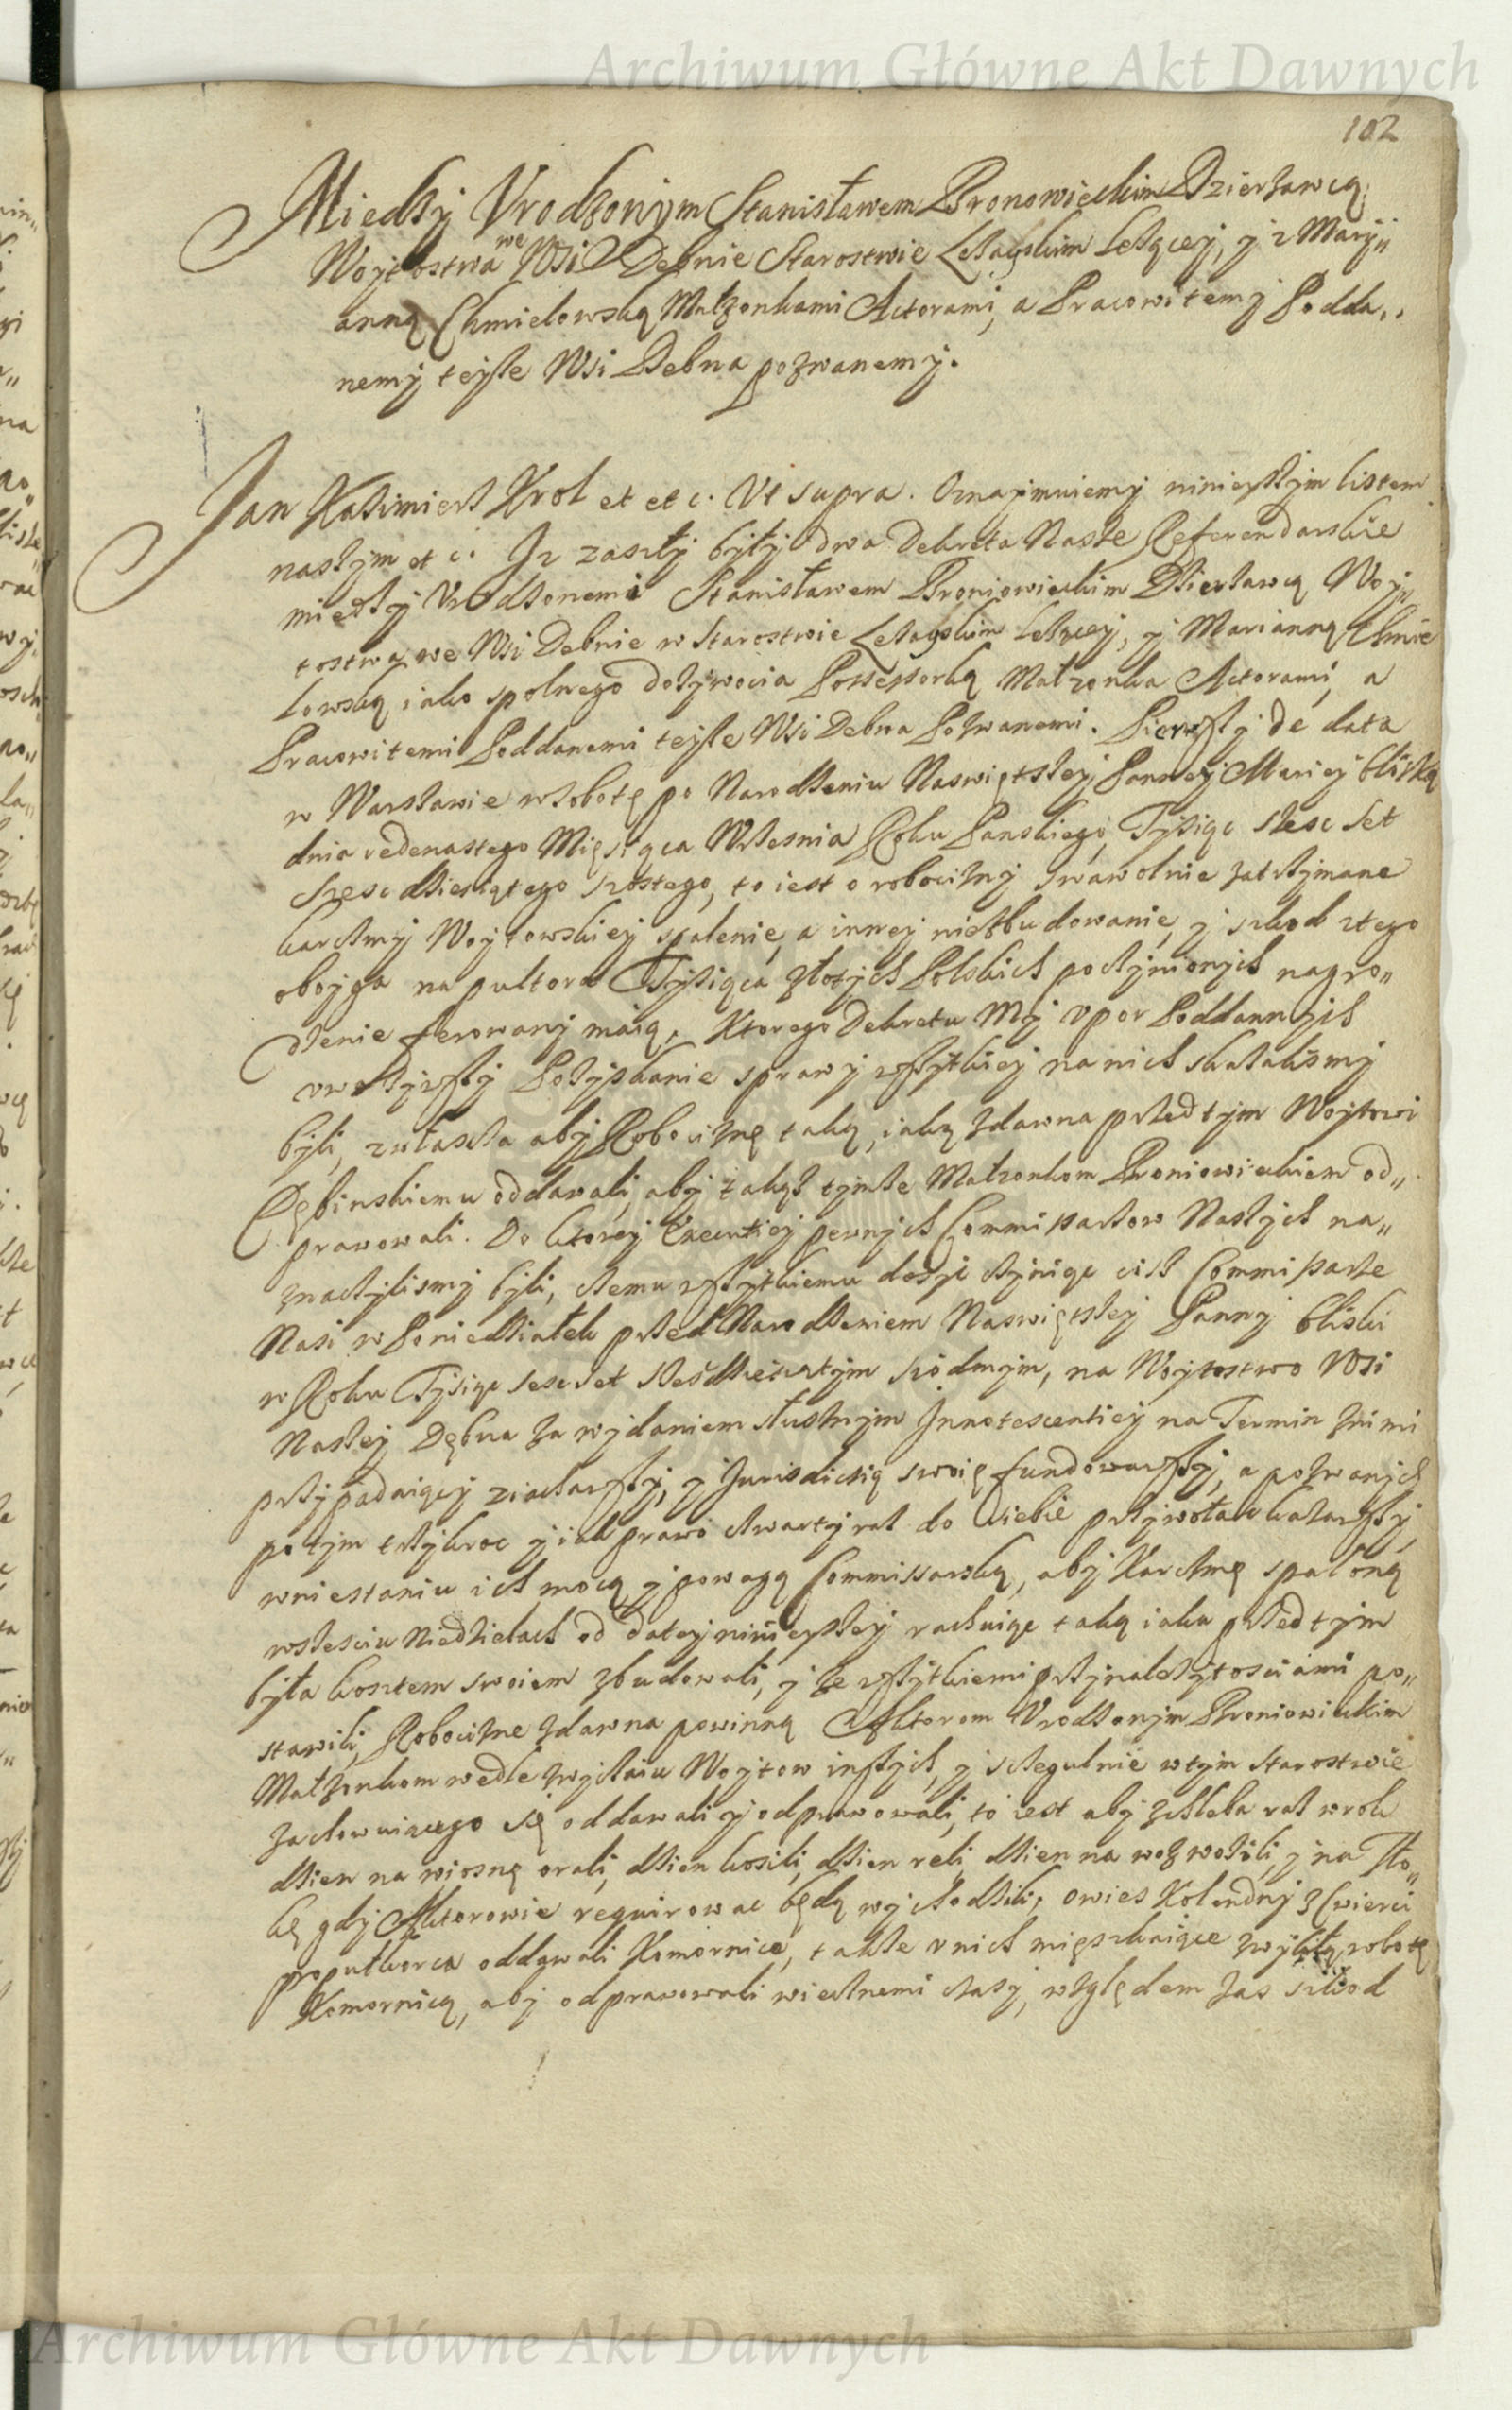 Archiwum Główne Akt Dawnych
102
Miedzy Vrodzonym Stanisławem Bronowieckim Dzierzawcą
Woytostwa we Wsi Debnie Starostwie Lezayskim Lezącey, y z Mary„
anną Chmielowską Małzonkami Actorami, a Pracowitemy Podda„
nemy teysze Wsi Debna pozwanemy.
Jan Kazimierz Krol et etc. Vt supra. Oznaymuiemy ninieyszym listem
naszym etc. Iz zaszły były dwa Dekreta Nasze Referendarskie
miedzy Vrodzonemi Stanisławem Broniowieckim Dzierzawcą Woy„
tostwa we Wsi Debnie w Starostwie Lezayskim Lezącey, y Marianną Chmie
lowską iako spolnego dozywocia Possessorką Małzonka Actorami, a
Pracowitemi Poddanemi teysze Wsi Debna Pozwanemi. Pierwszy de data
w Warszawie w Sobotę po Narodzeniu Naswiętszey Panney Mariey bliską
dnia iedenastego Miesiąca Wrzesnia Roku Panskiego, Tysiąc szesc set
szescdziesiątego szostego, to iest o robocizny swawolnie zatrzymane
karczmy Woytowskiey spalenie, a inney niezbudowanie, y szkod ztego
oboyga na pultora Tysiąca złotych Polskich poczynionych nagro„
dzenie ferowany maią, Ktorego Dekretu My vpor Poddannych
vwazywszy Pozyskanie sprawy wszytkiey na nich skazalismy
byli, zwłaszcza aby Robociznę taką, iaką zdawna przed tym Woytowi
Dębinskiemu oddawali, aby takąz tymze Małzonkom Broniowieckiem od„
prawowali. Do ktorey Executiey pewnych Commissarzow Naszych na„
znaczylismy byli, czemu wszytkiemu dosyc czyniąc ciz Commissarze
Nasi w Poniedziałek przed Narodzeniem Naswiętszey Panny bliski
w Roku Tysiąc szesc set szescdziesiątym siodmym, na Woytostwo Wsi
Naszey Dębna za wydaniem słusznym Innotescentiey na Termin znimi
przypadaiący ziachawszy, y Jurisdictią swoię fundowawszy, a pozwanych
potym trzykroc y iak prawo czwarty raz do siebie przywołac kazawszy,
w niestaniu ich mocą y powagą Commissarską, aby Karczmę spaloną
w szesciu Niedzielach od datey ninieyszey rachuiąc taką iaka przed tym
była kosztem swoiem zbudowali, y ze wszytkiemi przynalezytosciami po„
stawili, Robociznę zdawna powinną Aktorom Vrodzonym Broniowieckim
Małzonkom wedle zwyczaiu Woytow inszych, y szczegulnie w tym Starostwie
zachowuiącego się oddawali y odprawowali, to iest aby z chleba raz w rok
dzien na wiosnę orali, dzien kosili, dzien zeli dzien na woz wozili, y na Tło„
kę gdy Aktorowie requirowac będą wychodzili, owies Kolendny z Cwierci
pro pułkorca oddawali Komornice, takze v nich mięszkaiące zwykłą robotę
Komornicą, aby odprawowali wiecznemi czasy, względem zas szkod
Archiwum Główne Akt Dawnych